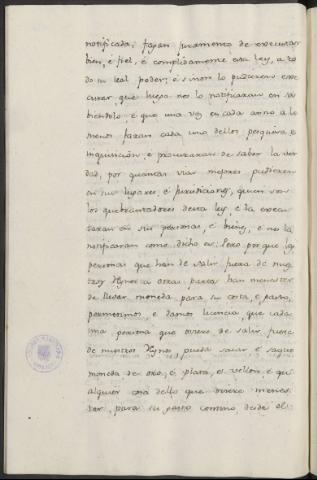 notificada; fagan juramento de executar
bien, é fiel, é complidamente esta ley, a to
do su leal poder; é si non lo pudieren exe
cutar, que luego nos lo notificaran en sa
biendolo; é que una vez en cada anno a lo
menos faran cada uno dellos pesquisa, é
inquisición, é procuraran de saber la ver
dad, por quantas vias mejores pudieren
en sus lugares, é jurisdiciones, quien son
los quebrantadores desta ley, é la execu
taran en sus personas, é bienes, é nos lo
notificaran como dicho es: Pero por que las
personas que han de salir fuera de nues
tros Reynos a otras partes han menester
de llevar moneda para su costa, é gasto,
permitimos, é damos licencia que cada
una persona que oviere de salir fuera
de nuestros Reynos, pueda sacar é saque
moneda de oro, é plata, et vellon, é qual
alquier cosa dello que oviere menes
ter, para su gasto comino, desde el